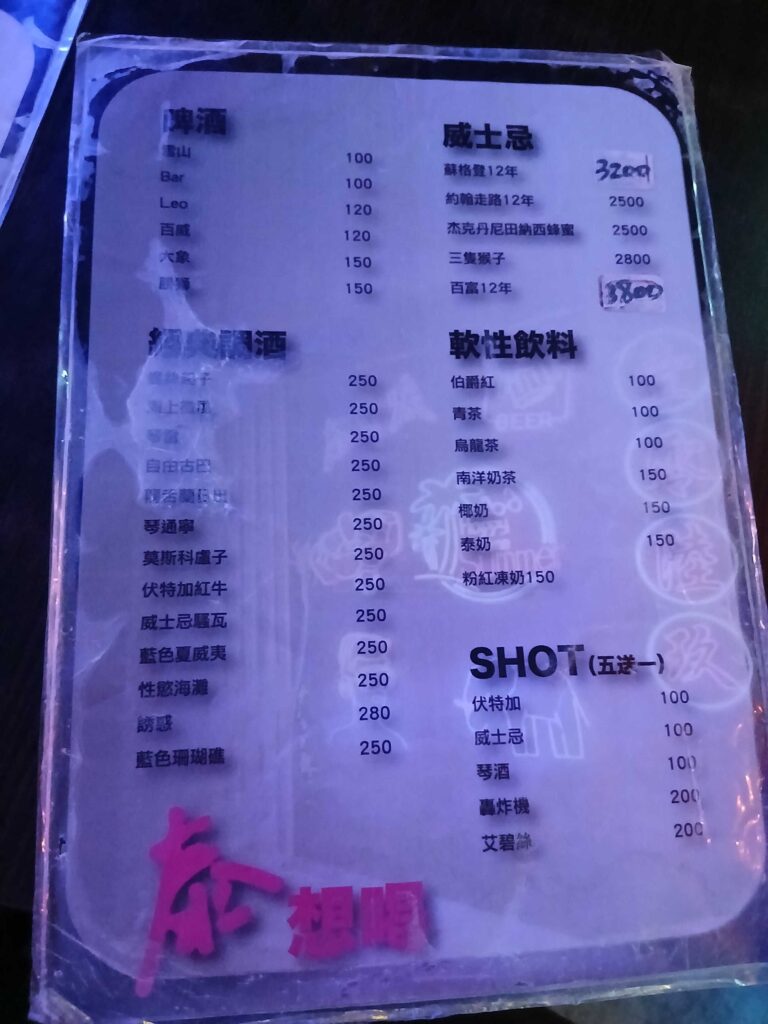 啤酒
雪山 100
Bar 100
Leo 120
百威 120
大象 150
150
威士忌
蘇格登12年 3200
約翰走路12年 2500
杰克丹尼田納西蜂蜜 2500
三隻猴子 2800
百富12年 3800
經典調酒
螺絲起子 250
海上微風 250
琴蕾 250
自由古巴 250
龍舌蘭日出 250
琴通寧 250
莫斯科盧子 250
伏特加紅牛 250
威士忌騷瓦 250
藍色夏威夷 250
性慾海灘 250
誘惑 280
藍色珊瑚礁 250
軟性飲料
伯爵紅 100
青茶 100
烏龍茶 100
南洋奶茶 150
椰奶 150
泰奶 150
粉紅凍奶150
SHOT(五送一)
伏特加 100
威士忌 100
琴酒 100
轟炸機 200
艾碧絲 200
泰想喝